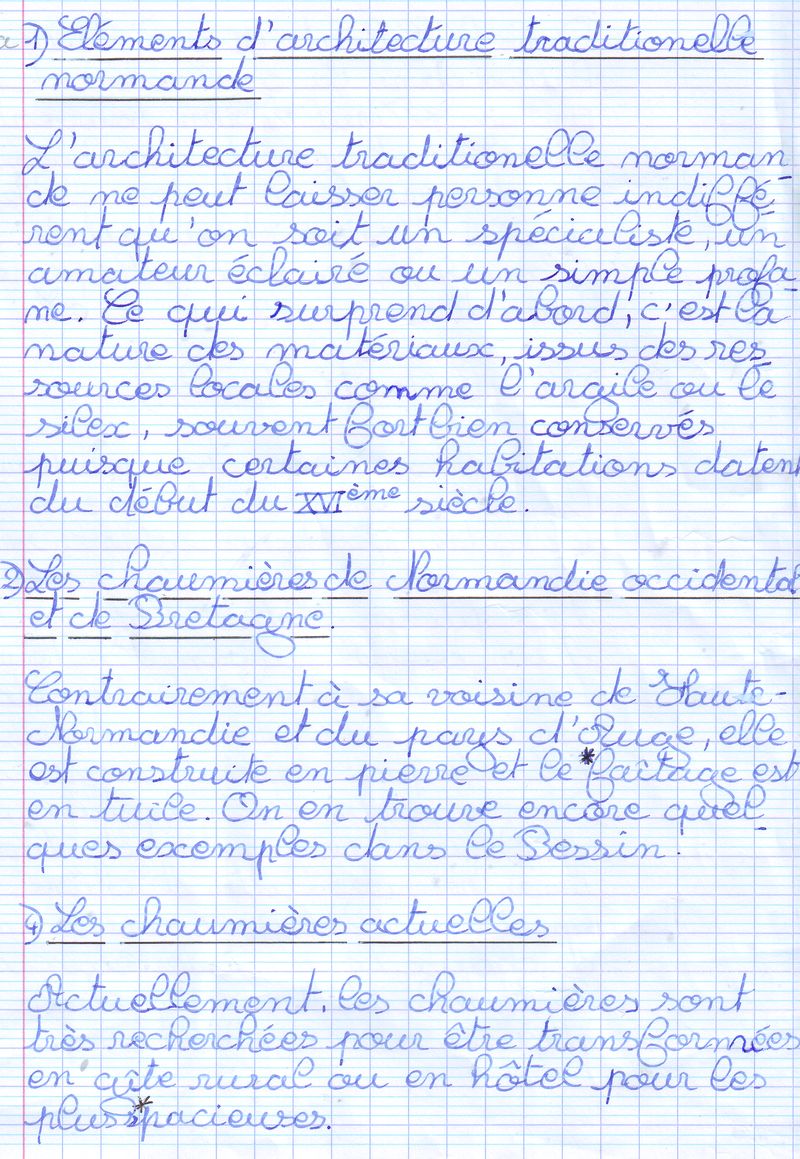 1) Eléments d'architecture traditionelle
normande
L'architecture traditionelle norman-
de ne peut laisser personne indiffé-
rent qu'on soit un spécialiste, un
amateur éclairé ou un simple profa-
ne. Ce qui surprend d'abord, c'est la
nature des matériaux, issus des res-
sources locales comme l'argile ou le
silex, souvent fort bien conservés
puisque certaines habitations datent
du début du XVIème siècle.
2) Les chaumières de Normandie occidental
et de Bretagne.
Contrairement à sa voisine de Haute-
Normandie et du pays d'Auge, elle
est construite en pierre et le *faîtage est
en tuile. On en trouve encore quel-
ques exemples dans le Bessin.
4) Les chaumières actuelles
Actuellement, les chaumières sont
très recherchées pour être transformées
en gîte rural ou en hôtel pour les
plus *spacieuses.